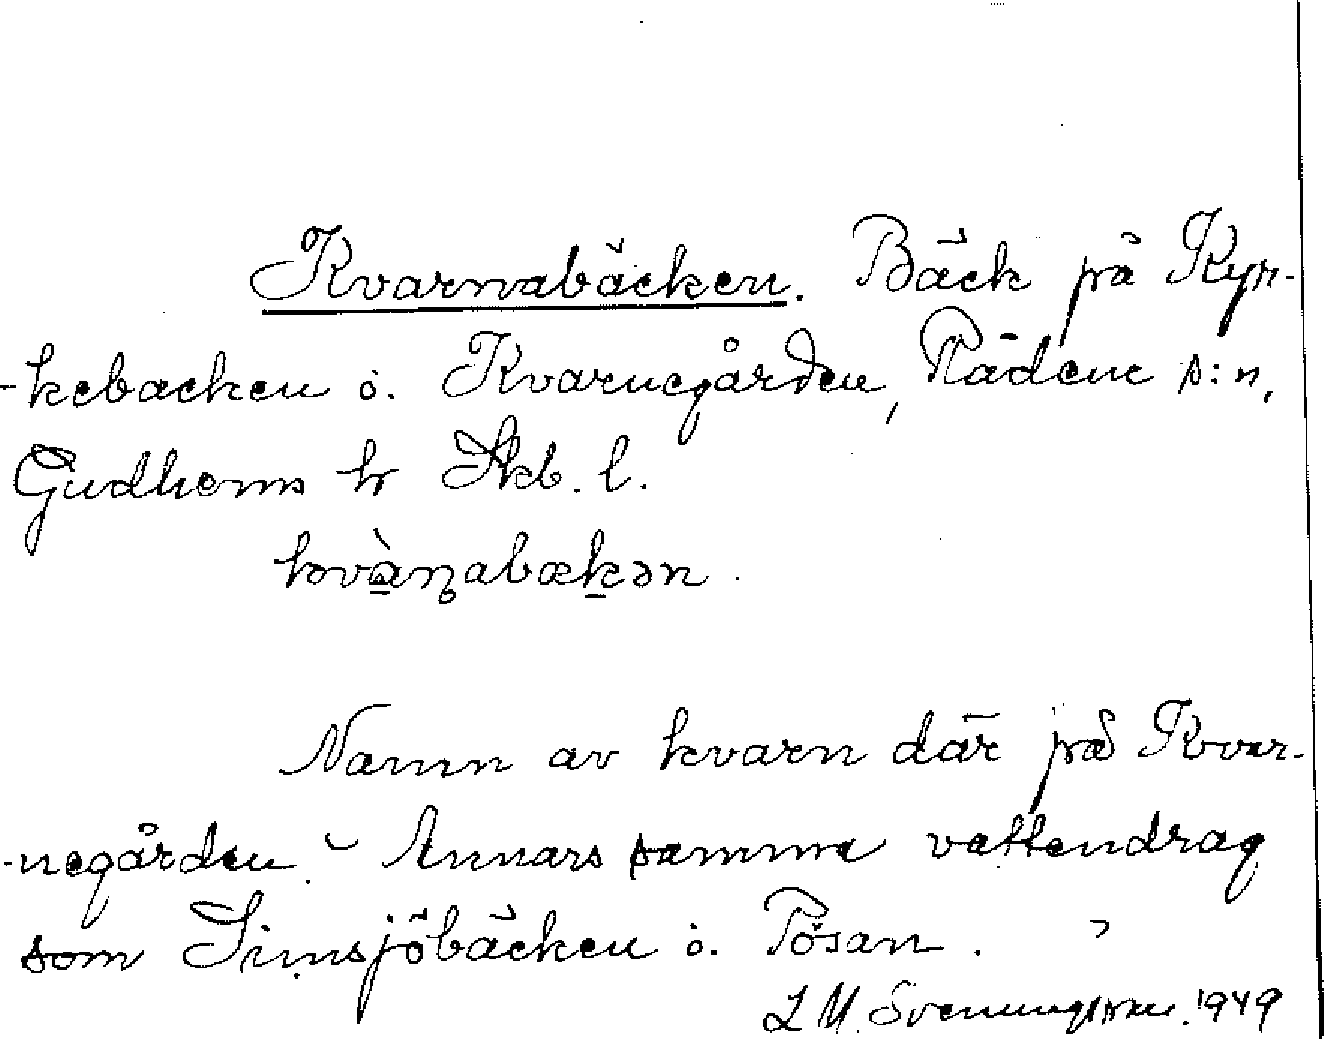 Kvarnabäcken. Bäck på Kyr-
-kebacken o. Kvarnegården, Rådene s:n,
Gudhems hr Skb. l.
kvàɳabækən.
Namn av kvarn där på Kvar-
-negården. - Annars samma vattendrag
som Simsjöbäcken o. Pösan.
L M. Svenungsson. 1949